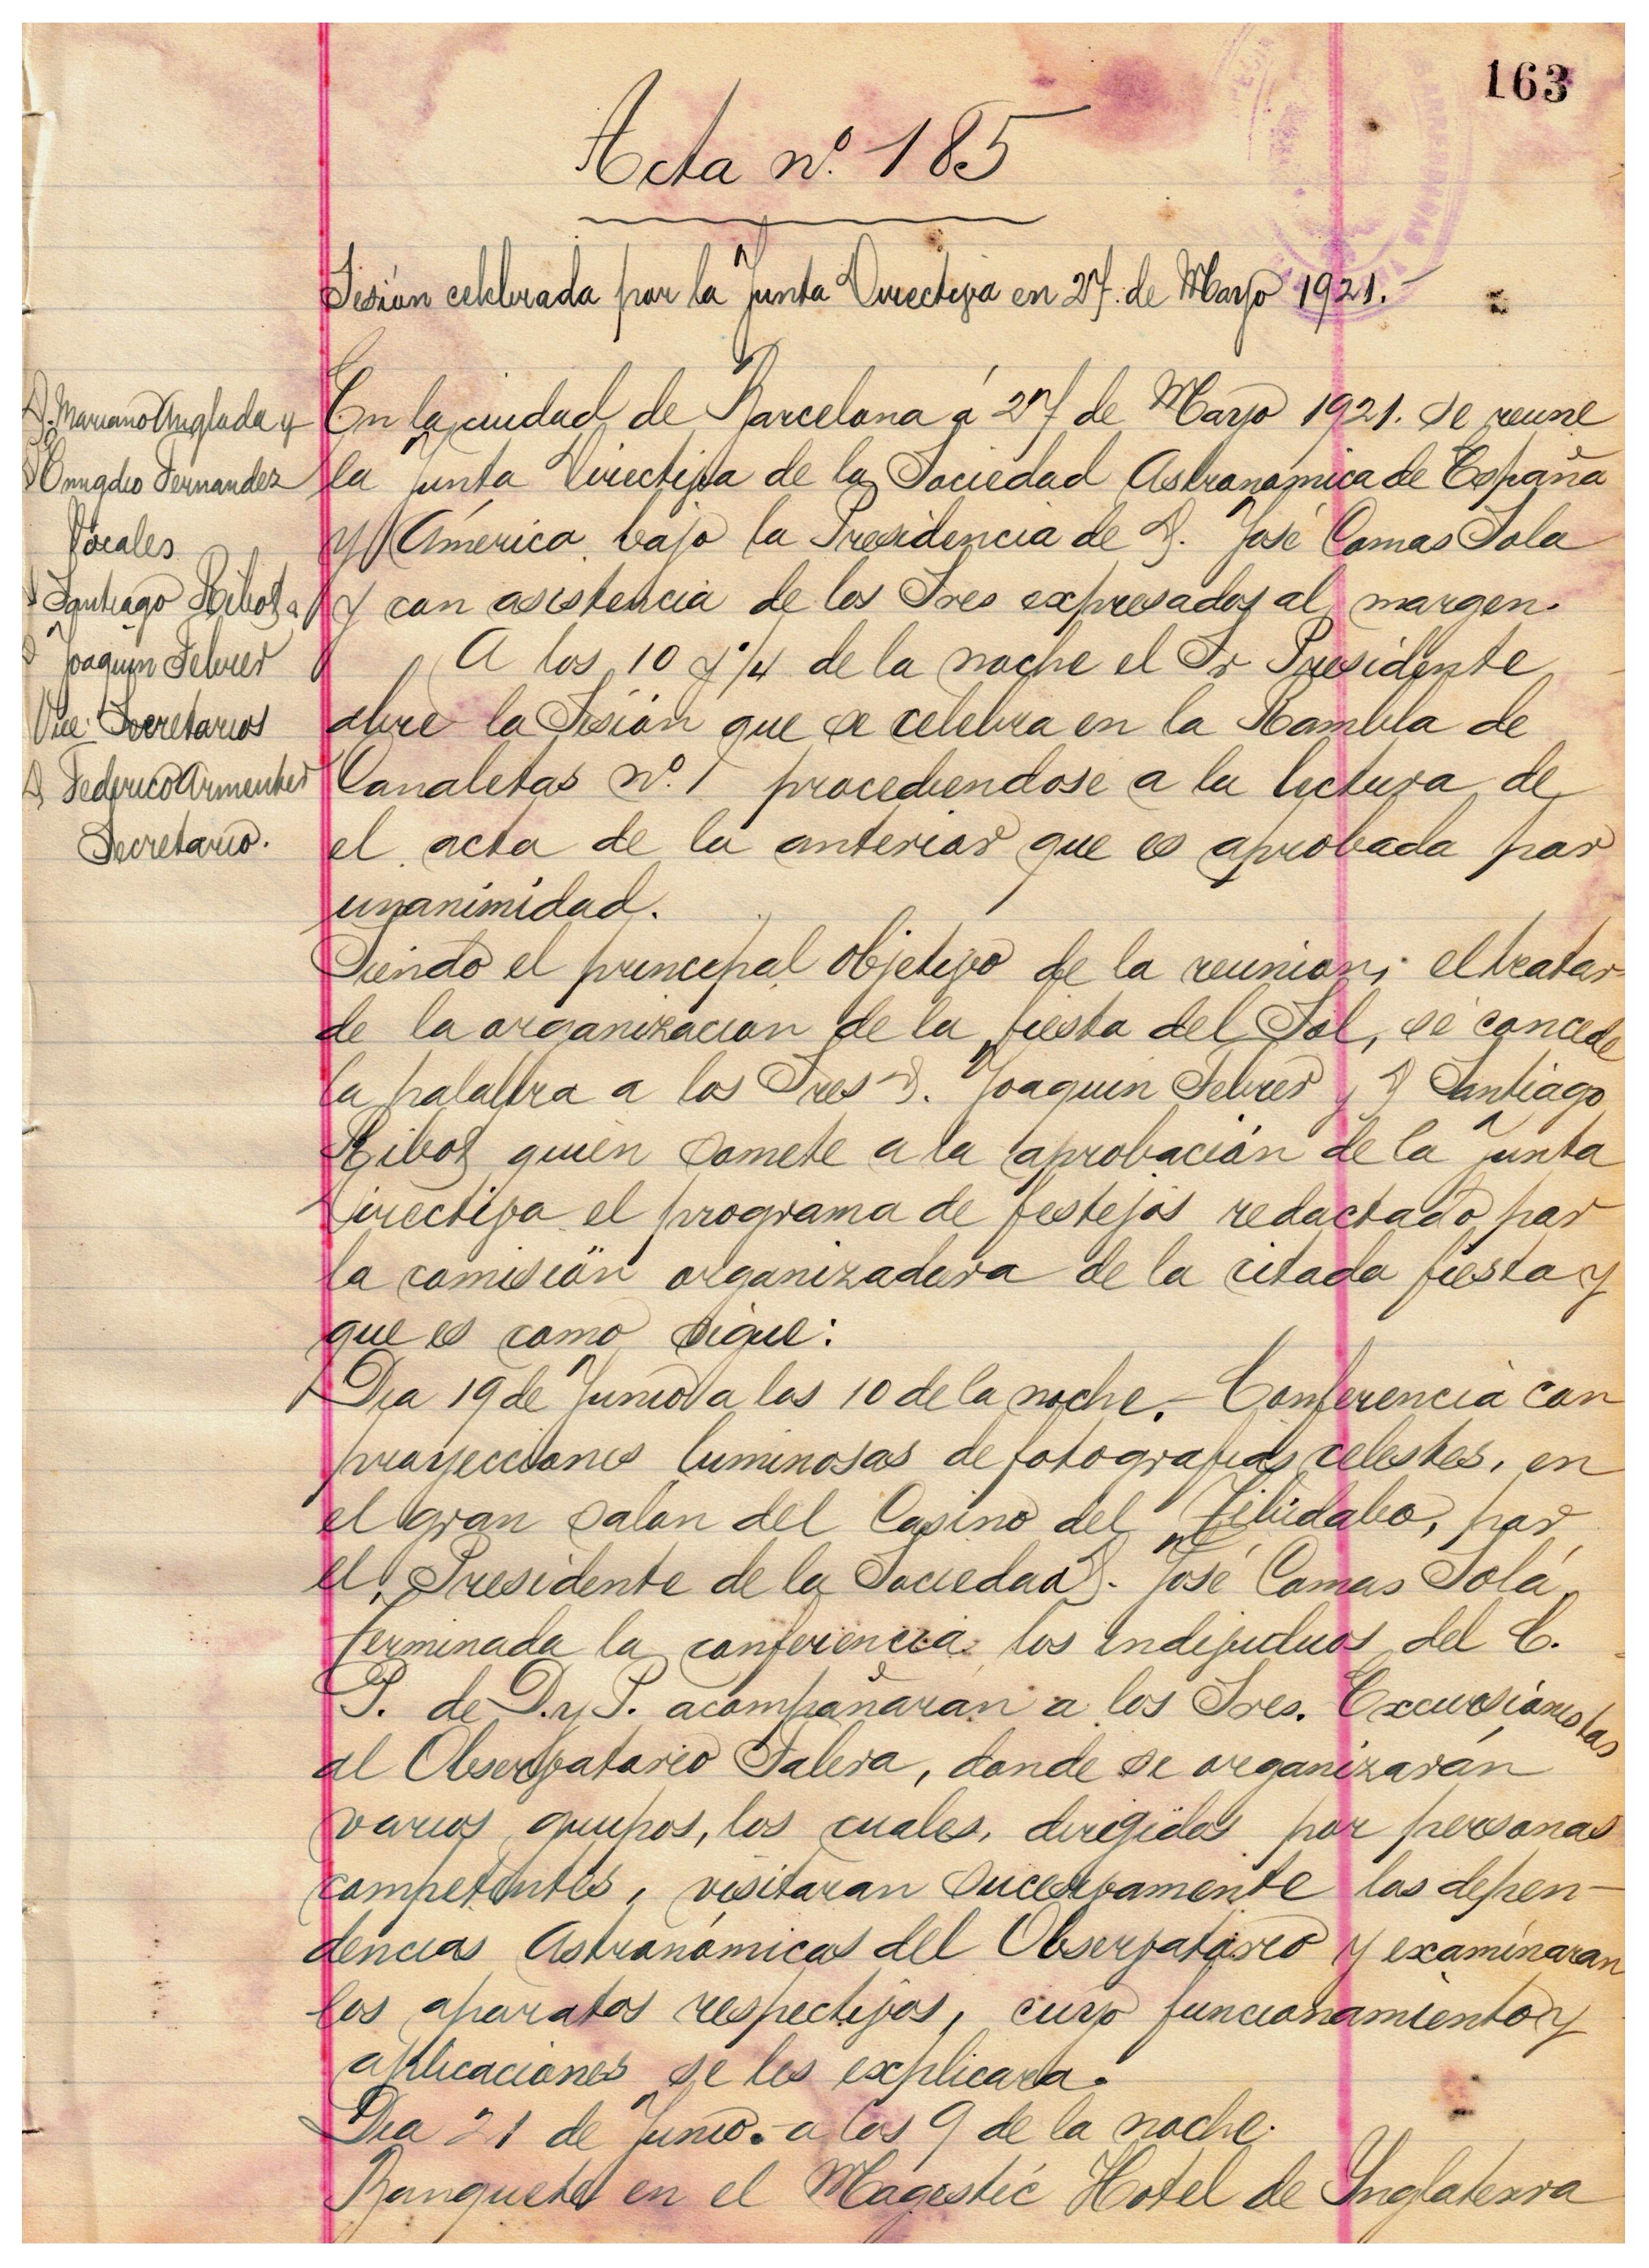 163
Acta nº. 185
Sesión celebrada por la Junta Directiva en 27 de Mayo 1921.-
D. Mariano Anglada y
D Emigdio Fernandez
Vocales
D Santiago Ribot y
D Joaquin Febrer
Vice-Secretarios
D Federico Armenter
Secretario.
En la ciudad de Barcelona á 27 de Mayo 1921. se reune
la Junta Directiva de la Sociedad Astronomica de España
y América bajo la Presidencia de D. José Comas Sola
y con asistencia de los Sres expresados al margen.
A las 10 y ¼ de la noche el Sr Presidente
abre la Sesión que se celebra en la Rambla de
Canaletas nº. 1 procediendose a la lectura de
el acta de la anterior que es aprobada por
unanimidad.
Siendo el principal objetivo de la reunion; el tratar
de la organizacion de la fiesta del Sol, se concede
la palabra a los Sres D. Joaquin Febrer y D Santiago
Ribot quien somete a la aprobación de la Junta
Directiva el programa de festejos redactado por
la comisión organizadora de la citada fiesta y
que es como sigue:
Dia 19 de Junio a las 10 de la noche.- Conferencia con
proyecciones luminosas de fotografias celestes, en
el gran salon del Casino del Tibidabo, por
el Presidente de la Sociedad D. José Comas Solá.
Terminada la conferencia los individuos del C.
P. de D. y P. acompañarán a los Sres. Excursionistas
al Observatorio Fabra, donde se organizarán
varios grupos, los cuales, dirigidos por personas
competentes, visitaran sucesivamente las depen-
dencias Astronómicas del Observatorio y examinaran
los aparatos respectivos, cuyo funcionamiento y
aplicaciones se les explicara.
Dia 21 de Junio.- a las 9 de la noche.
Banquete en el Magestic Hotel de Inglaterra